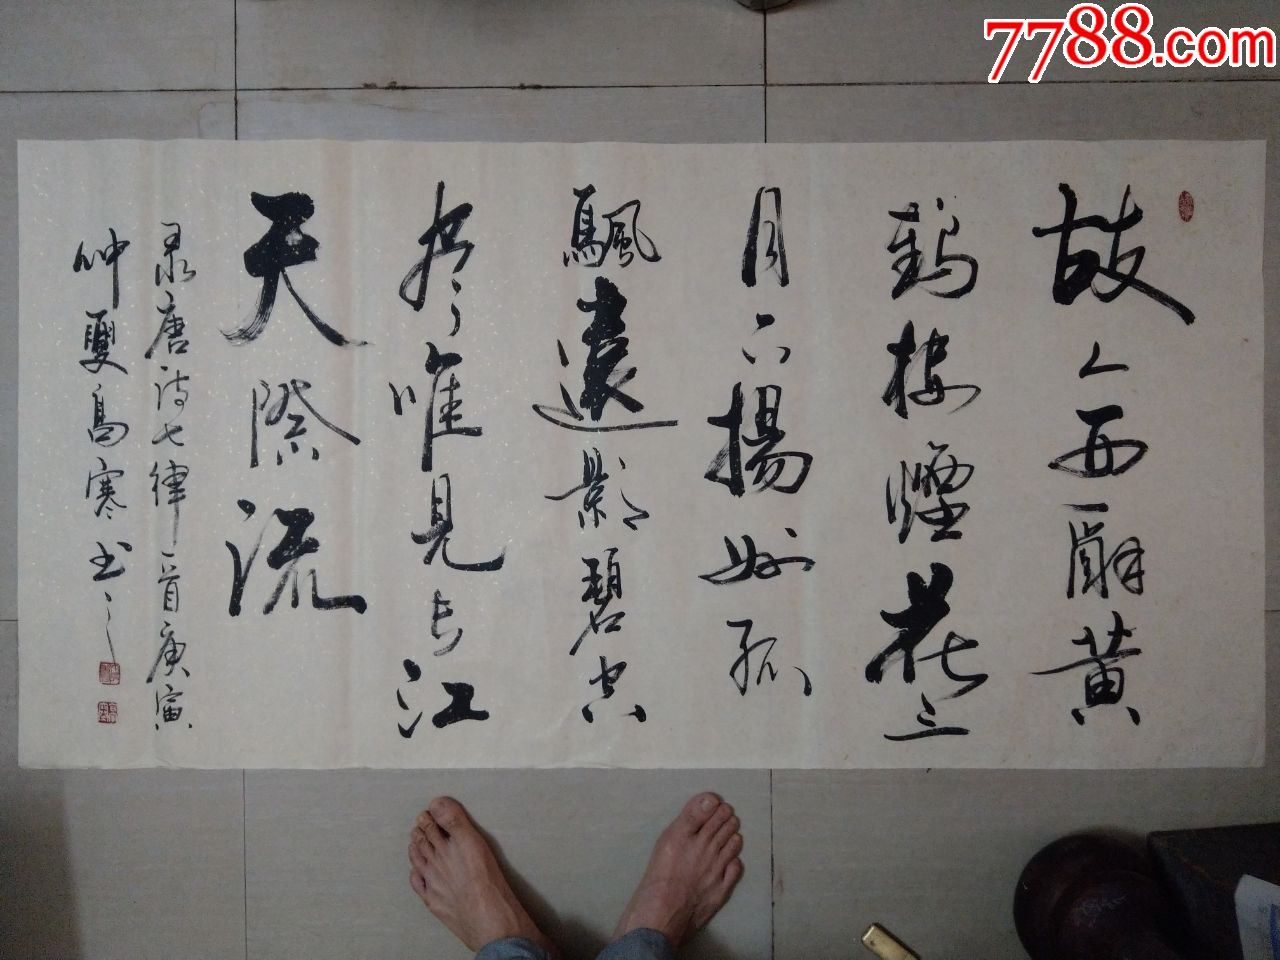 7788.com
故人西辭黃
鶴樓煙花三
月下揚州孤
颿遠影碧空
盡唯見長江
天際流
录唐诗七律一首庚寅
仲夏高寒书之